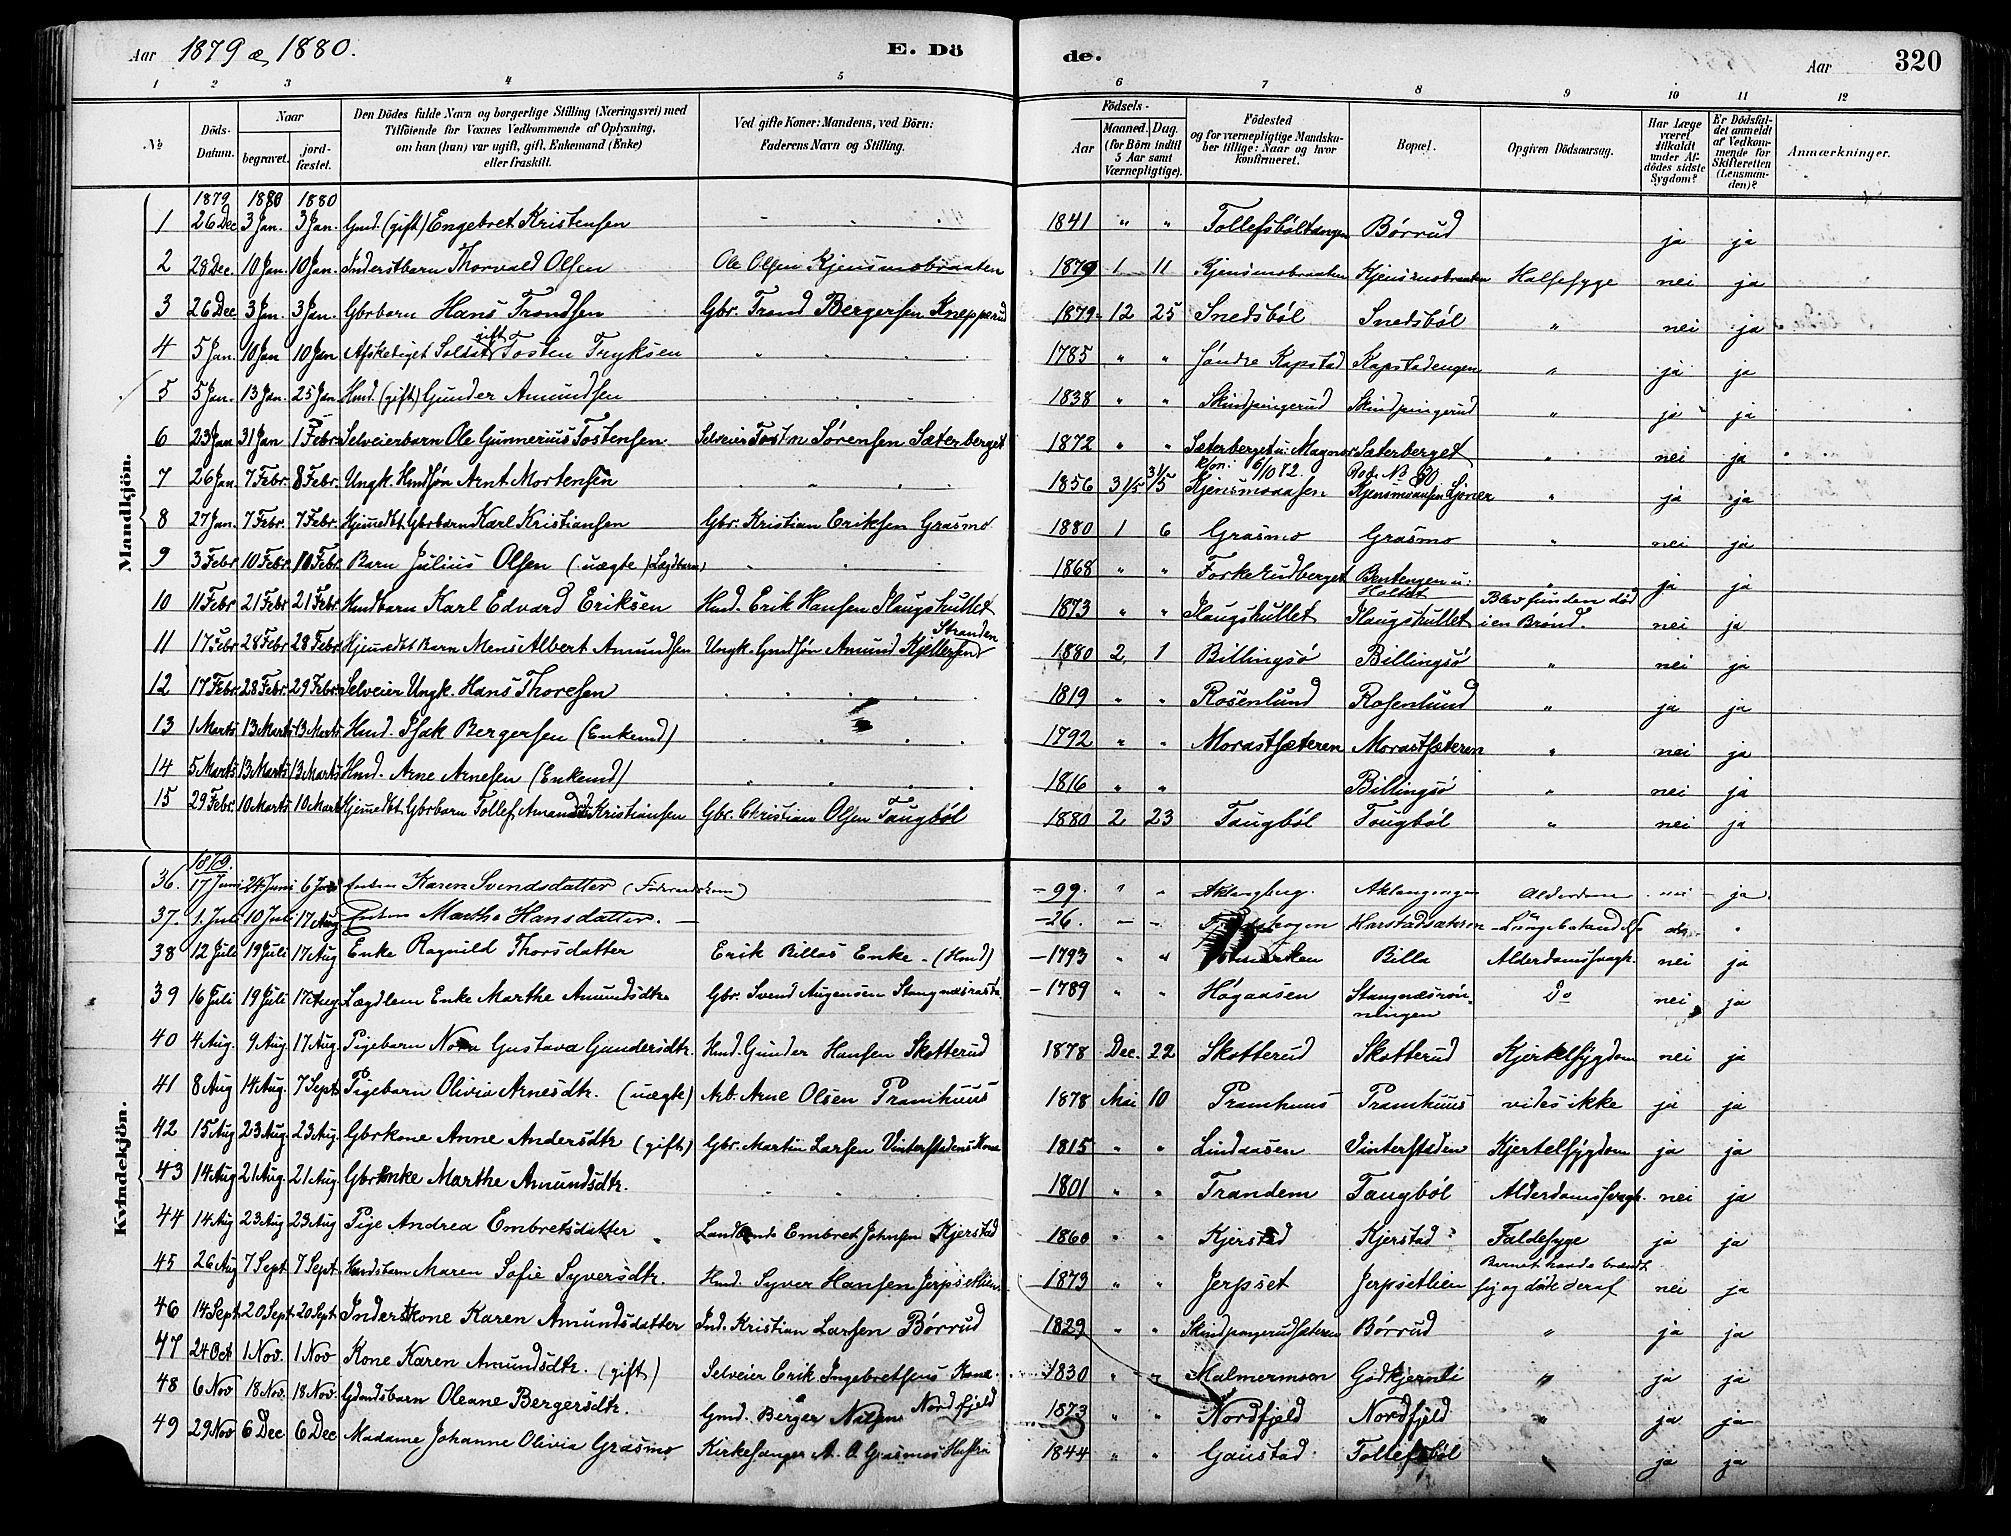 Aar 1879 & 1880. E. Dö de. Aar 320
1 2 3 4 5 6 7 8 9 10 11 12
No
Döds-Datum.
Naar
begravet.
jordfæstet.
Den Dödes fulde Navn og borgerlige Stilling (Næringsvei) med
Tilföiende for Voxnes Vedkommende af Oplysning,
om han (hun) var ugift, gift, Enkemand (Enke)
eller fraskilt.
Ved gifte Koner: Mandens, ved Börn:
Faderens Navn og Stilling.
Födsels-
Aar
Maaned. Dag.
(for Börn indtil
5 Aar samt
Værnepligtige).
Födested
og for værnepligtige Mandskaber tillige: Naar og hvor
konfirmeret.
Bopæl.
Opgiven Dödsaarsag.
Har Læge
været
tilkaldt
under Afdödes sidste
Sygdom?
Er Dödsfaldet anmeldt
af Vedkommende for
Skifteretten
(Lensmanden)?
Anmærkninger.
Mandkjön.
1879 1880 1880
1 26 Dec 3 Jan. 3 Jan. Gmd. (gift) Engebret Kristensen 1841 " " Tollefsböltangen Börrud ja ja
2 28 Dec. 10 Jan. 10 Jan. Inderstbarn Thorvald Olsen Ole Olsen Kjensmobraaten 1879 1 11 Kjensmobraaten Kjensmobraaten Halsesyge nei ja
3 26 Dec 3 Jan. 3 Jan. Gbrbarn Hans Trondsen Gbr. Trond Bergersen Knepperud 1879 12 25 Snedsböl Snedsböl " nei ja
4 5 Jan. 10 Jan 10 Jan Afskediget Soldat gift Tosten Tryksen 1785 " " Söndre Kapstad Kapstadengen " ja ja
5 5 Jan. 13 Jan. 25 Jan Hmd. (gift) Gunder Amundsen 1838 " " Skindpungerud Skindpungerud " ja ja
6 23 Jan 31 Jan 1 Febr. Selveierbarn Ole Gunnerius Tostensen Selveier Tosten Sörensen Sæterberget 1872 " " Sæterberget u. Magnor Sæterberget " nei ja
7 26 Jan. 7 Febr. 8 Febr. Ungk. Hmdsön Arnt Mortensen 1856 31/5 31/5 Kjensmoaasen kon: 6/10 72. Kjensmoaasen Rode No 80 " ja ja
8 27 Jan. 7 Febr. 7 Febr. Hjemedbt. Gbrbarn Karl Kristiansen Gbr. Kristian Eriksen Grasmo 1880 1 6 Grasmo Grasmo " nei ja
9 3 Febr 10 Febr. 10 Febr. Barn Julius Olsen (uægte) Lægdbarn 1868 " " Forkerudberget Bentengen u: Holdt " ja ja
10 11 Febr 21 Febr 21 Febr. Hmdbarn Karl Edvard Eriksen Hmd. Erik Hansen Haugshullet 1873 " " Haugshullet Haugshullet Blev funden död i en Brönd. nei ja
11 17 Febr 28 Febr. 28 Febr. Hjemedbt Barn Mens Albert Amundsen Ungk. Gmdsön Amund Kjellersen Stranden 1880 2. 1 Billingsö Billingsö " nei ja
12 17 Febr. 28 Febr. 29 Febr. Selveier Ungk. Hans Thoresen 1819 " " Rosenlund Rosenlund " ja ja
13 1 Marts 13 Marts 13 Marts Hmd. Isak Bergersen (Enkemd) 1792 " " Morastsæteren Morastsæteren " nei ja
14 5 Marts 13 Marts 13 Marts Hmd. Arne Arnesen (Enkemd) 1816 " " Billingsö " nei ja
15 29 Febr. 10 Marts 10 Marts Hjemedbt. Gbrbarn Tollef Kristiansen Gbr. Christian Olsen Taugböl 1880 2 23 Taugböl Taugböl " nei ja
Kvindekjön.
1879.
36. 17 Juni 24 Juni 6 Karen Svendsdatter -99. " " Aklangberg. Aklangengen Alderdom nei ja.
37. 1. Juli 10 Juli 17 Aug Marthe Hansdatter. -26. Harstadsætren Lungebetændelse "
38 12 Juli 19 Juli 17 Aug Enke Ragnild Thorsdatter Erik Billas Enke - (Hmd) -1793 " " Billa Alderdomssvagh. nei ja
39 16 Juli 19 Juli 17 Aug. Lægdlem Enke Marthe Amundsdtr Gbr. Svend Augensen -1789 " " Högaasen Stangnæsrönningen Do nei ja
40 4 Aug. 9 Aug. 17 Aug. Pigebarn Nora Gustava Gundersdtr. Hmd. Gunder Hansen Skotterud 1878 Dec. 22 Skotterud Skotterud Kjertelsygdom nei ja
41 8 Aug 14 Aug. 7 Sept Pigebarn Olivia Arnesdtr. (uægte) Arb. Arne Olsen Pramhuus 1878 Mai 10 Pramhuus Pramhuus vides ikke ja ja
42 15 Aug 23 Aug. 23 Aug. Gbrkone Anne Andersdtr (gift) Gbr. Martin Larsen Vinterstadens Kone 1815 " " Lindaasen Vinterstaden Kjertelsygdom ja ja
43 14 Aug 21 Aug. 21 Aug. Gbrenke Marthe Amundsdtr. 1801 " " Trandem Taugböl Alderdomssvagh. nei ja
44 14 Aug 23 Aug 23 Aug Pige Andrea Embretsdatter Embret Johnsen Kjerstad 1860 " " Kjerstad Kjerstad Faldesyge ja ja
45 26 Aug 7 Sept 7 Sept. Hmdsbarn Maren Sofie Syversdtr. Hmd. Syver Hansen Jerpsetlien 1873 " " Jerpset Jerpsetlien Barnet havde brændt sig og döde deraf nei ja
46 14 Sept. 20 Sept. 20 Sept. Inderstkone Karen Amundsdatter Ind. Kristian Larsen Börrud 1829 " " Skindpungerudsæteren Börrud " ja ja
47 24 Oct 1 Nov. 1 Nov Kone Karen Amundsdtr. (gift) Selveier Erik Ingebretsens Kone. 1830 " " Malmermoen Godkjernli " ja ja
48 6 Nov 18 Nov. 18 Nov. Gmdsbarn Oleane Bergersdtr. Gmd. Berger Nilsen Nordfjeld 1873 " " Nordfjeld Nordfjeld " ja ja
49 29 Nov 6 Dec 6 Dec Madame Johanne Olivia Grasmo Kirkesanger A. O. Grasmos Hustru 1844 " " Gaustad Tollefsböl " ja ja